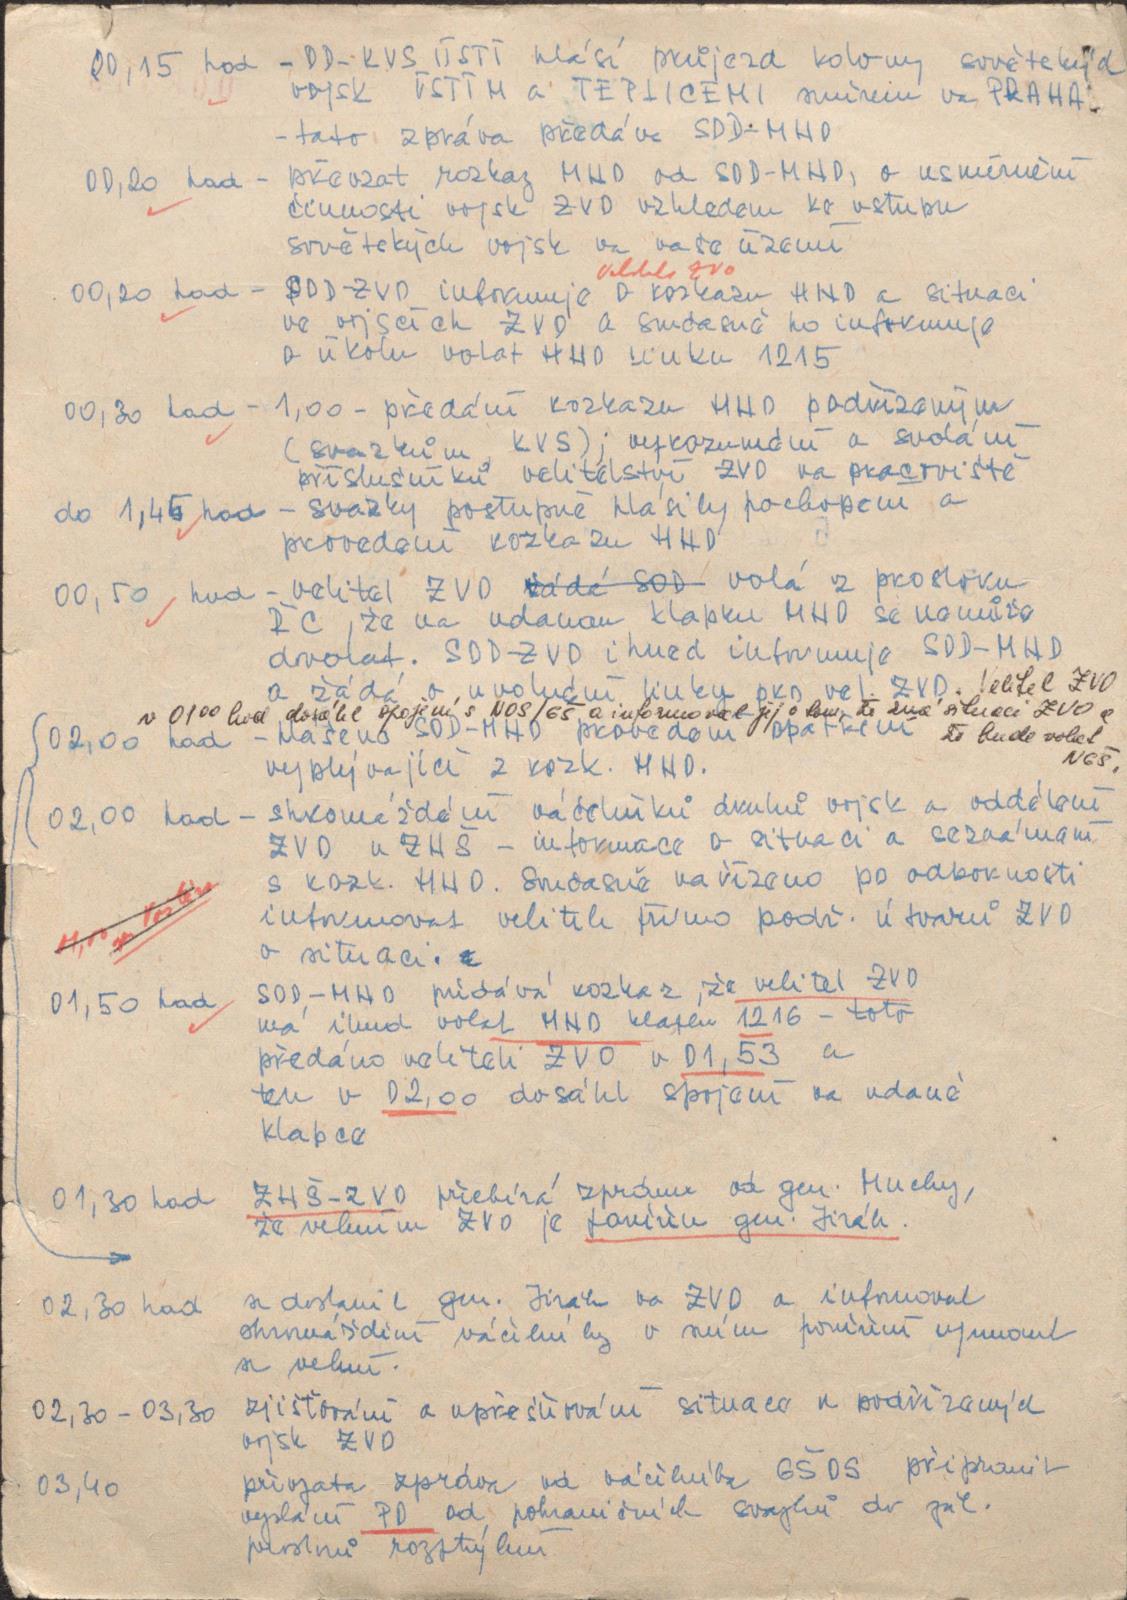 00,15 hod - DD-KVS ÚSTÍ hlásí průjezd kolony sovětských
vojsk ÚSTÍM a TEPLICEMI směrem na PRAHA.
- tato zpráva předána SDD-MNO
00,20 hod - převzat rozkaz MNO od SDD-MNO, o usměrnění
činnosti vojsk ZVO vzhledem ke vstupu
sovětských vojsk na naše území
velitele ZVO
00,20 hod - SDD-ZVO informuje o rozkazu MNO a situaci
ve vojscích ZVO a současně ho informuje
o úkolu volat MNO linku 1215
00,30 hod - 1,00 - předání rozkazu MNO podřízeným
(svazkům, KVS); vyrozumění a svolání
příslušníků velitelství ZVO na pracoviště
do 1,45 hod - svazky postupně hlásily pochopení a
provedení rozkazu MNO
00,50 hod - velitel ZVO žádá SDD volá z prostoru
ŘC, že na udanou klapku MNO se nemůže
dovolat. SDD-ZVO ihned informuje SDD-MNO
a žádá o uvolnění linky pro vel. ZVO. Velitel ZVO
v 01⁰⁰ hod dosáhl spojení s NOS/GŠ a informoval jej o tom, že zná situaci ZVO a
že bude volat
NGŠ.
02,00 hod - hlášeno SDD-MNO provedení opatření
vyplývající z rozk. MNO.
02,00 hod - shromáždění náčelníků druhů vojsk a oddělení
ZVO u ZNŠ - informace o situaci a seznámení
s rozk. MNO. Současně nařízeno po odbornosti
informovat velitele přímo podř. útvarů ZVO
o situaci.
01,50 hod SDD-MNO předává rozkaz, že velitel ZVO
má ihned volat MNO klapku 1216 - toto
předáno veliteli ZVO v 01,53 a
ten v 02,00 dosáhl spojení na udané
klapce
01,30 hod ZNŠ-ZVO přebírá zprávu od gen. Muchy,
že velením ZVO je pověřen gen. Jirák.
02,30 hod se dostavil gen. Jirák na ZVO a informoval
shromáždění náčelníky o svém pověření ujmout
se velení.
02,30 - 03,30 zjišťování a upřesňování situace u podřízených
vojsk ZVO
03,40 přijata zpráva od náčelníka GŠOS připravit
vyslání PD od pohraničních svazků do záp.
prostorů rozptýlení